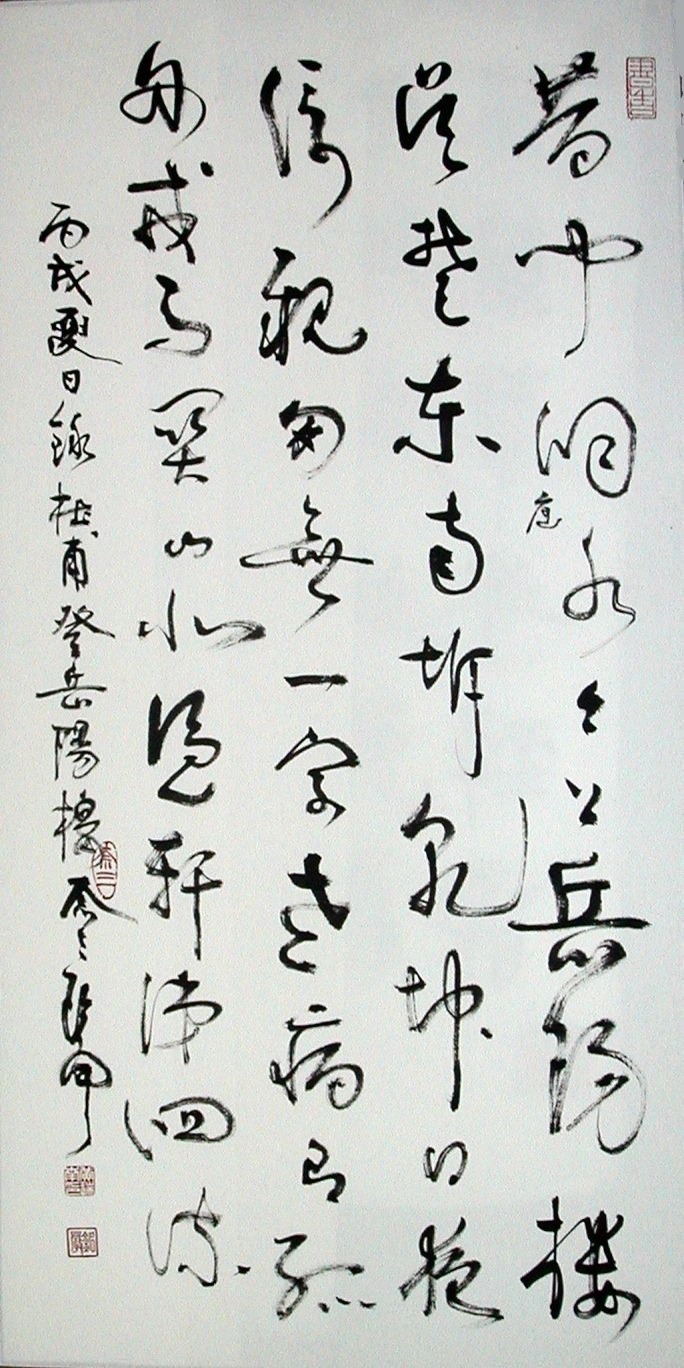 昔聞洞庭水今上岳陽樓
吳楚東南坼乾坤日夜
浮親朋無一字老病有孤
舟戎馬關山北憑軒涕泗流
丙戌夏日錄杜甫登岳陽樓